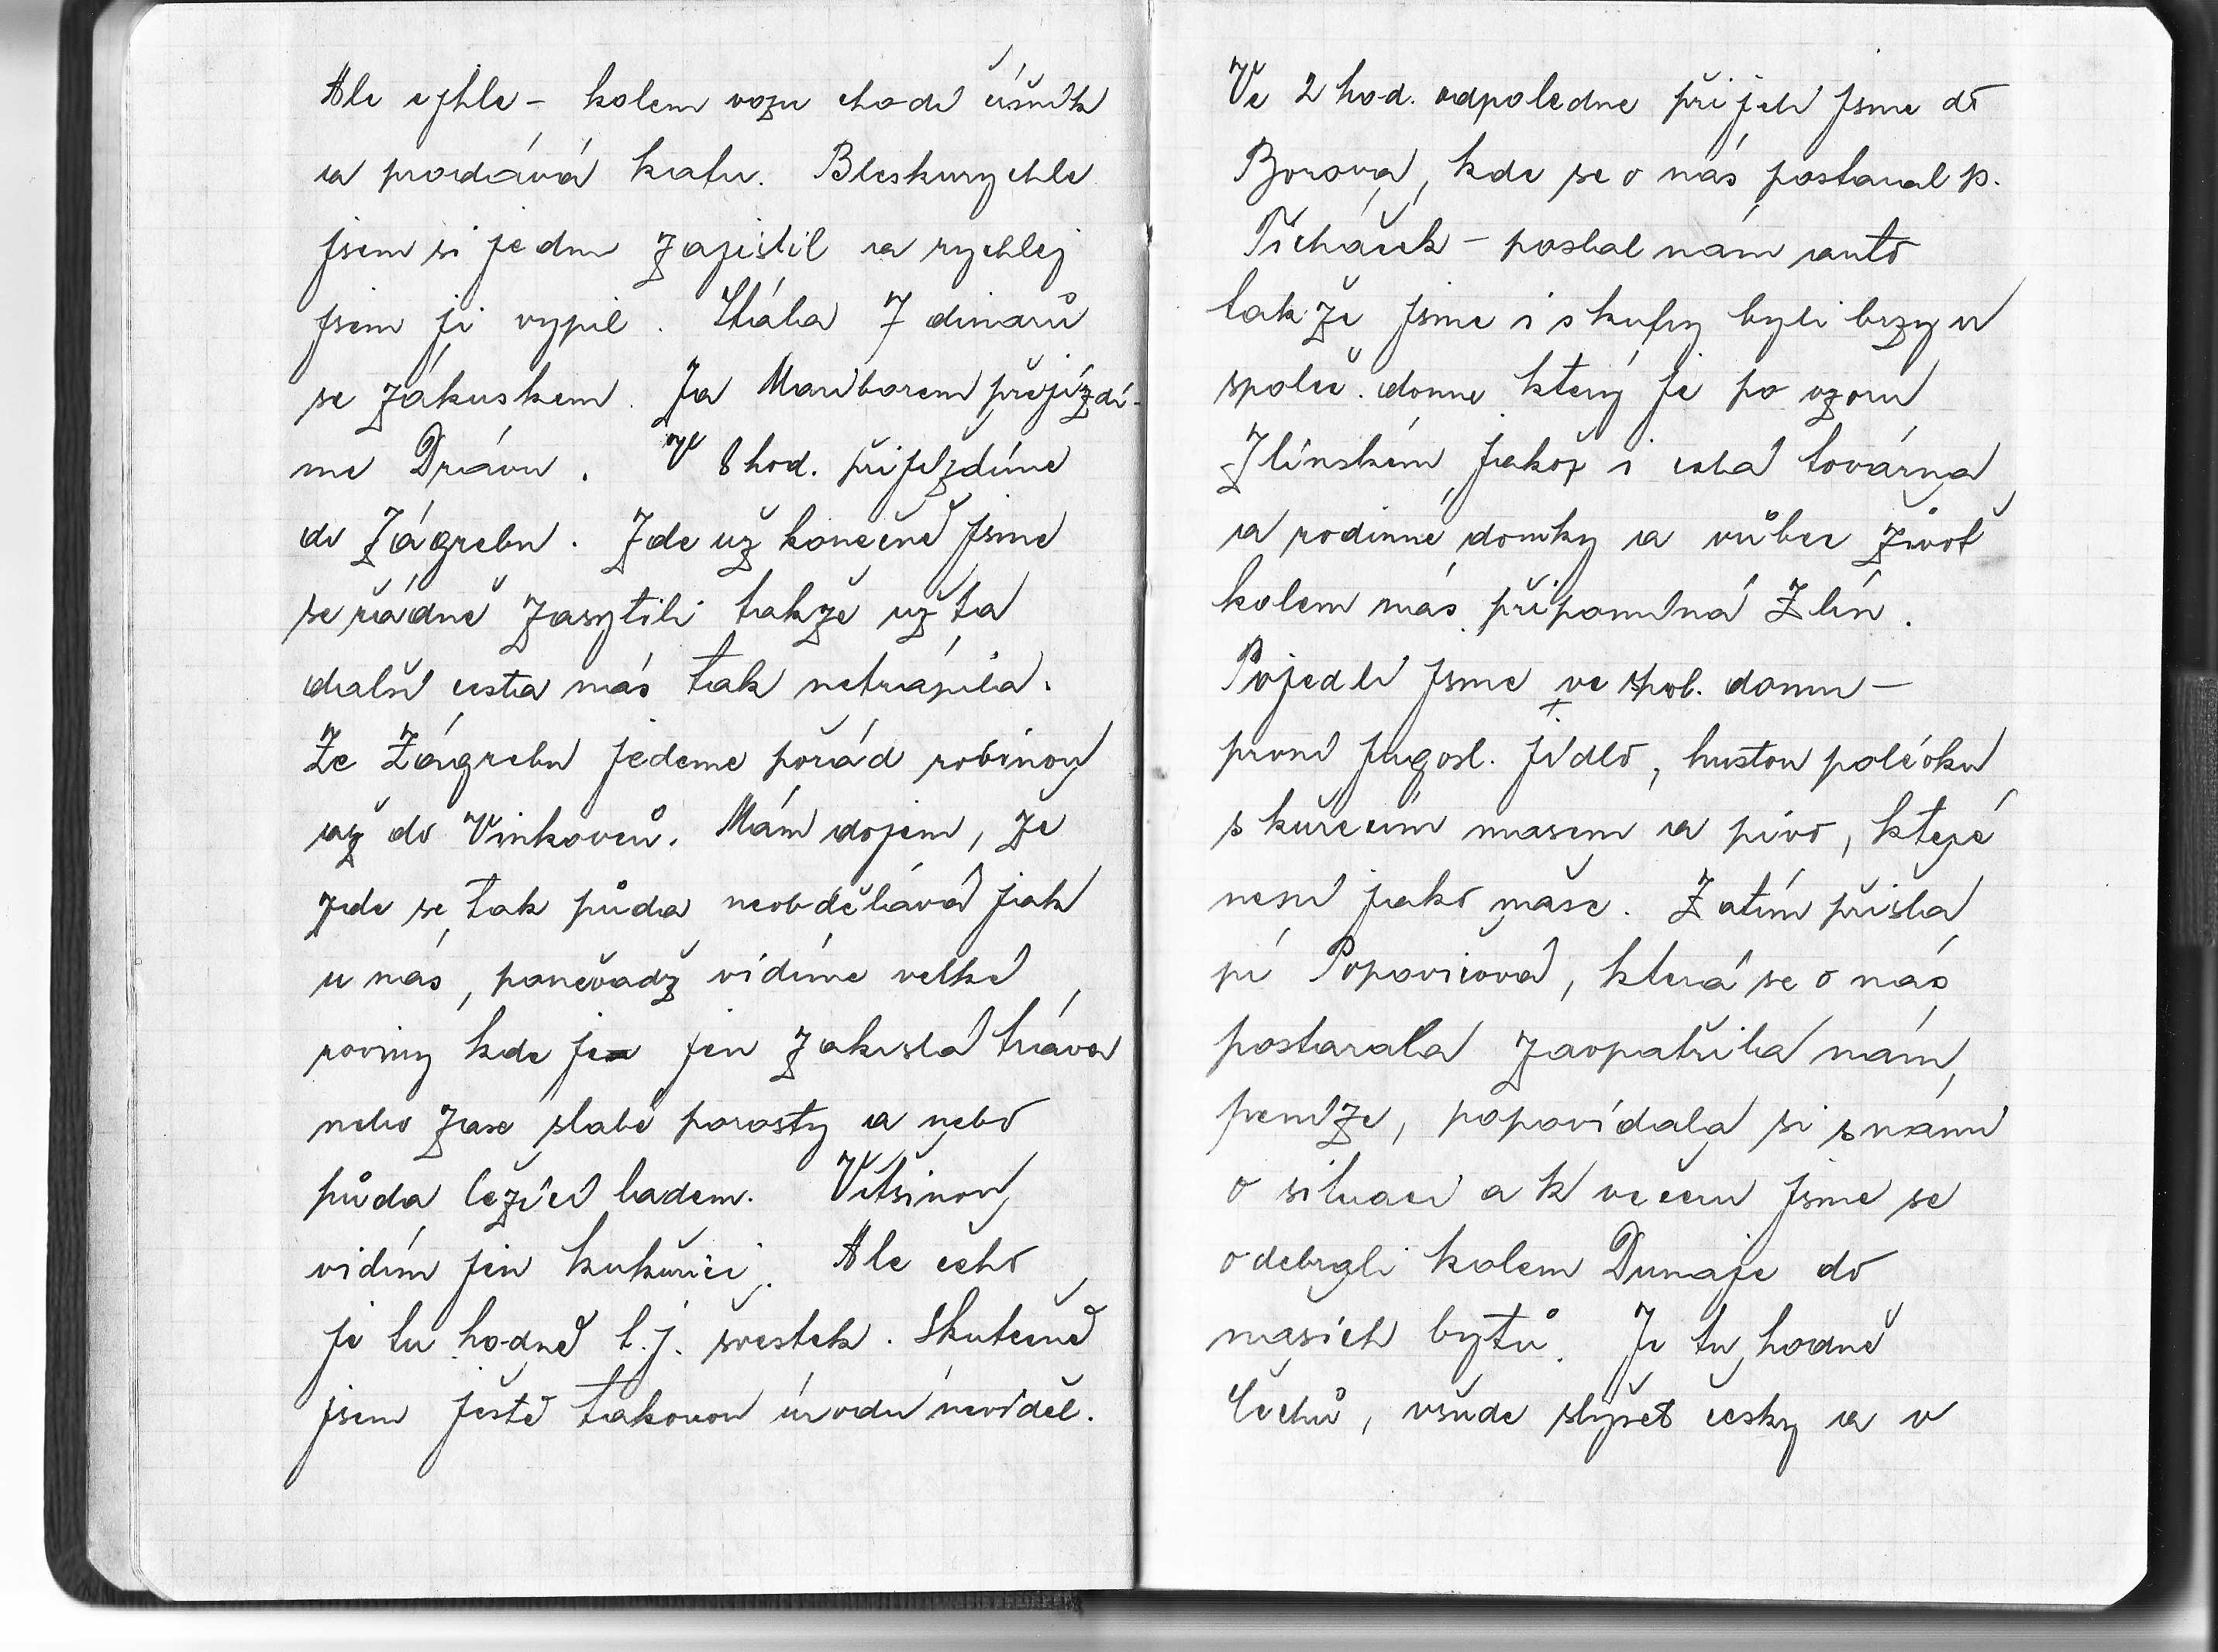 Ale ejhle - kolem vozu chodí číšník
a prodává kafu. Bleskurychle
jsem si jednu zajistil a rychlej
jsem ji vypil. Stála 7 dinarů
se zákuskem. Za Mariborem přejíždí-
me Drávu. V 8 hod. přijíždíme
do Zágrebu. Zde už konečně jsme
se řádně zasytili takže už ta
další cesta nás tak netrápila.
Ze Zágrebu jedeme pořád rovinou
až do Vinkovců. Mám dojem, že
zde se tak půda neobdělává jak
u nás, poněvadž vidíme velké
roviny kde je jen zakrslá tráva
nebo zase slabé porosty a nebo
půda ležící ladem. Většinou
vidím jen kukuřici. Ale čeho
je tu hodně t.j. švestek. Skutečně
jsem ještě takovou úrodu neviděl.
Ve 2 hod. odpoledne přijeli jsme do
Borova, kde se o nás postaral p.
poslal nám auto
takže jsme i s kufry byli brzy v
společ. domu který je po vzoru
Zlínském jakož i celá továrna
a rodinné domky a vůbec život
kolem nás připomíná Zlín.
Pojedli jsme ve spol. domu -
první jugosl. jídlo, hustou polévku
s kuřecím masem a pivo, které
není jako naše. Zatím přišla
pí Popovičová, která se o nás
postarala zaopatřila nám
peníze, popovídala si s námi
o situaci a k večeru jsme se
odebrali kolem Dunaje do
našich bytů. Je tu hodně
Čechů, všude slyšet česky a v